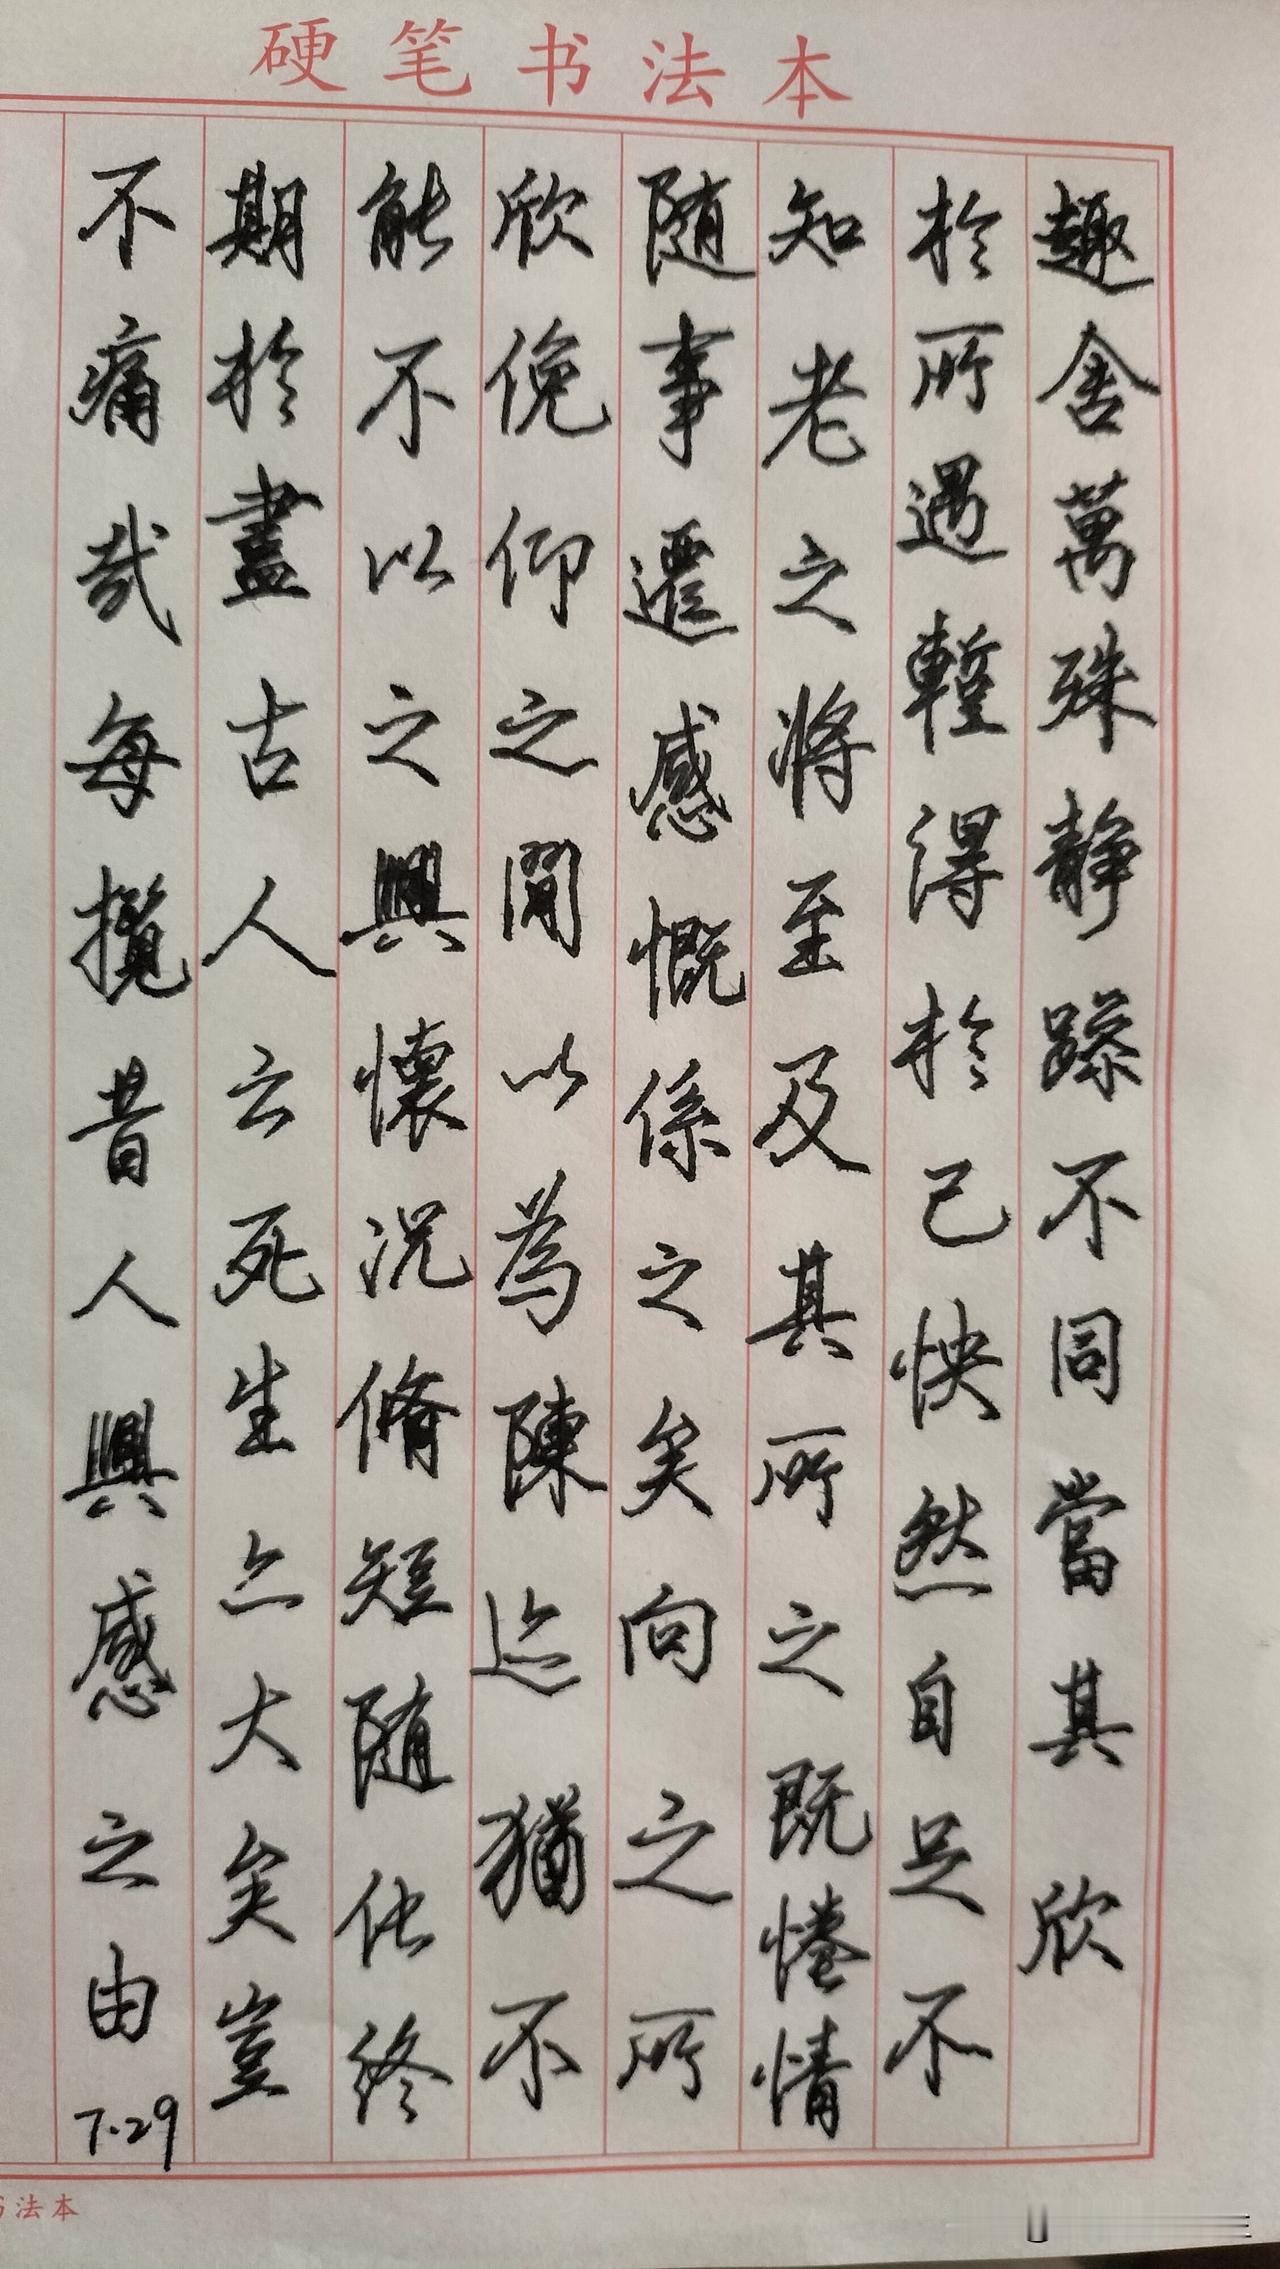 硬笔书法本
趣舍萬殊静躁不同當其欣
於所遇暫得於己怏然自足不
知老之将至及其所之既惓情
随事遷感慨係之矣向之所
欣俛仰之閒以為陳迹猶不
能不以之興懷況脩短随化終
期於盡古人云死生亦大矣豈
不痛哉每攬昔人興感之由
7.29
书法本